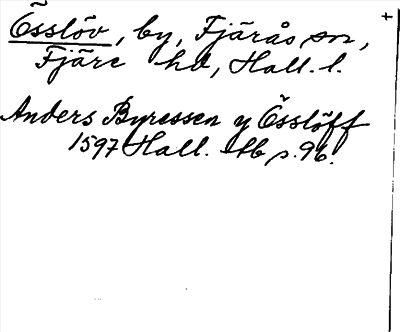 Össlöv, by, Fjärås sn,
Fjäre hd, Hall. l.
Anders Byressen y Össlöff
1597 Hall. tb s. 96.